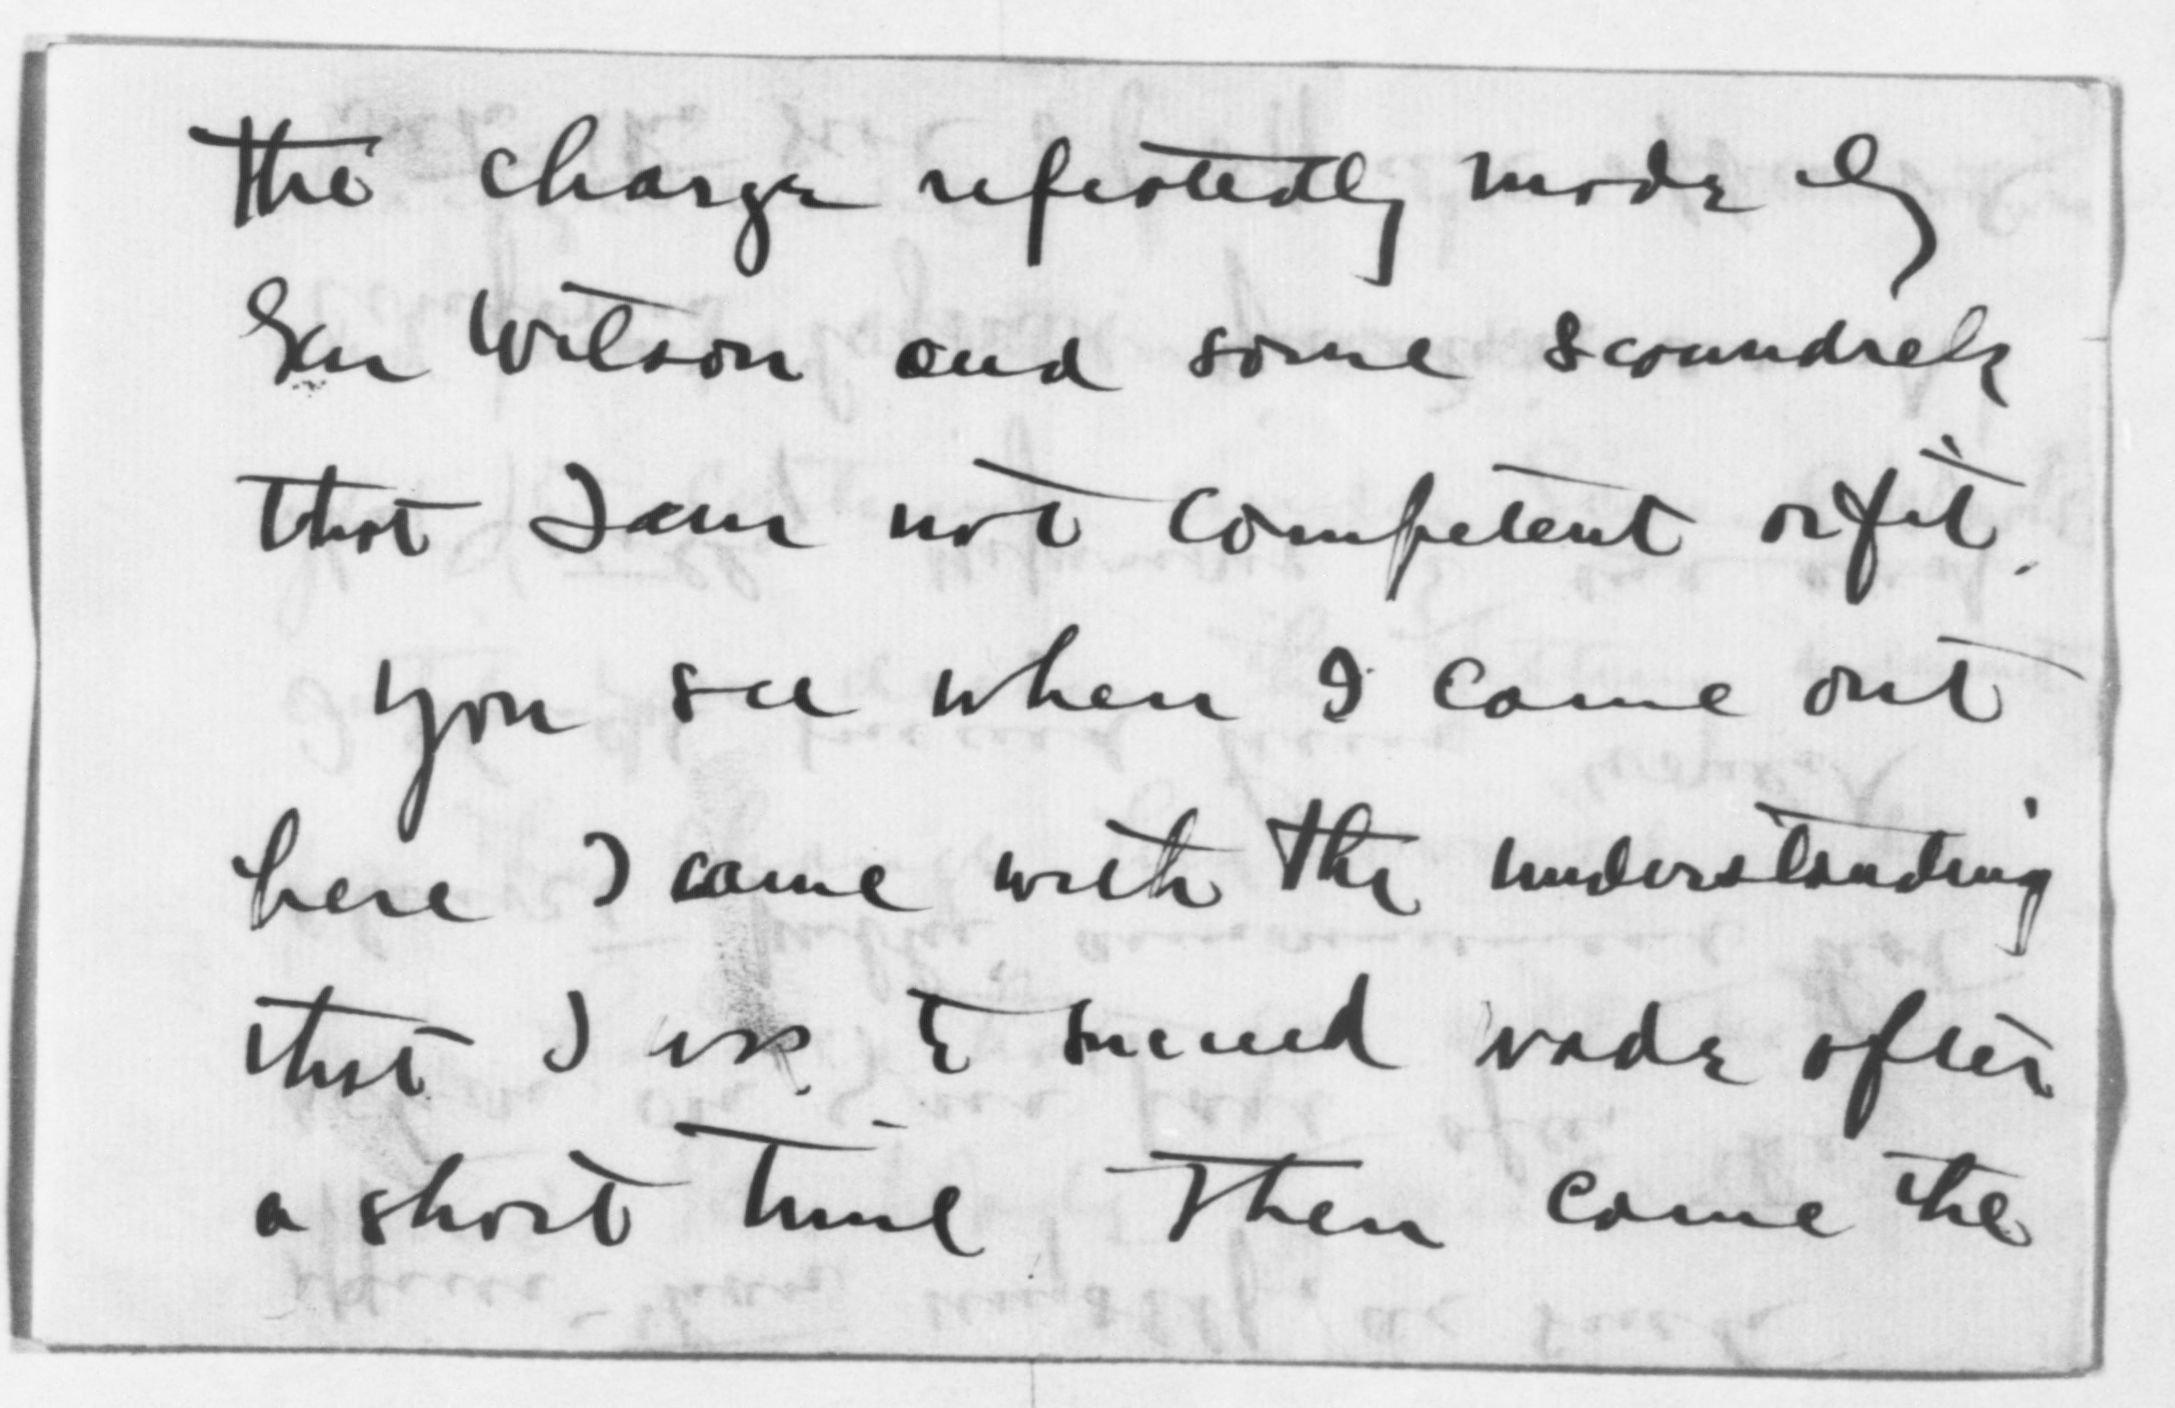 the charge repeatedly made by
Gen Wilson and some scoundrels
that I am not competent or fit.
You see when I came out
here I came with the understanding
that I was to succeed Wade after
a short time Then came the